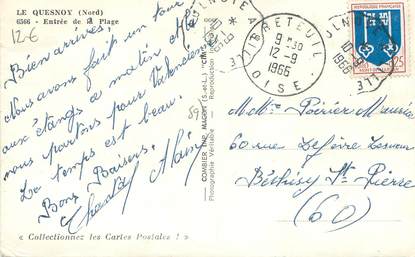 LE QUESNOY (Nord)
6566 - Entrée de la Plage
12-6
Bien arrivés,
Nous avons fait un tour
aux étangs ce matin. Ma
nous partons pour Valenciennes
Le temps est beau.
Bons Baisers.
Chantal Alain
« Collectionnez les Cartes Postales ! »
COMBIER IMP. MACON (S.-et-L.)
Photographie Véritable - Reproduction
BRETEUIL
9 H 30
12-9
1966
OISE
REPUBLIQUE FRANÇAISE
1966
Poirier Maurice
60 rue Lefèvre
Béthisy St-Pierre
(60)